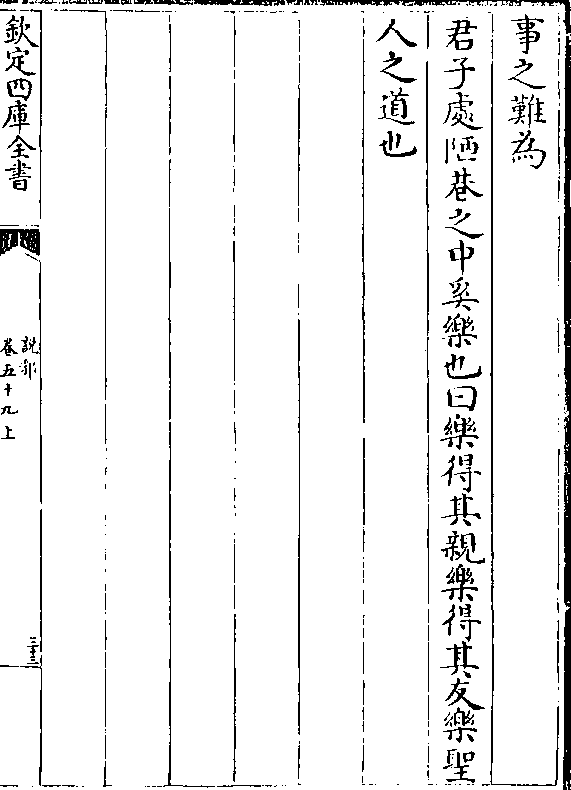 事之難為
君子處陋巷之中奚樂也曰樂得其親樂得其友樂聖
人之道也
欽定四庫全書
說郛
卷五十九上
三十三